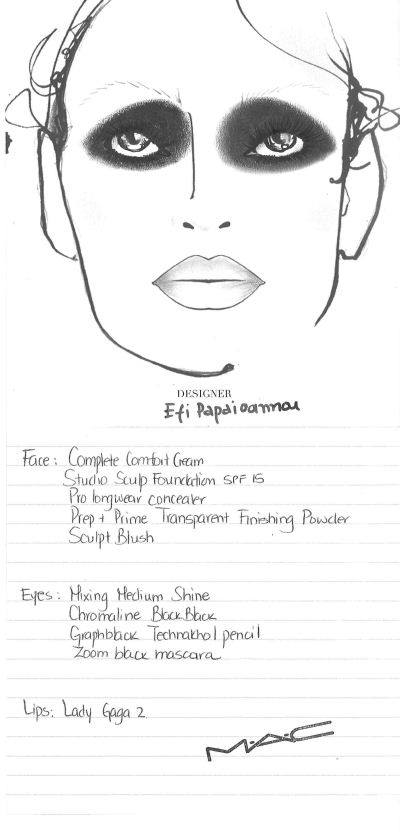 DESIGNER
Efi Papaioannou
Face: Complete Comfort Cream
Studio Sculp Foundation SPF 15
Pro longwear concealer
Prep + Prime Transparent Finishing Powder
Sculpt Blush
Eyes: Mixing Medium Shine
Chromaline BlackBlack
Graphblack Technakhol pencil
Zoom black mascara
Lips: Lady Gaga 2
M·A·C